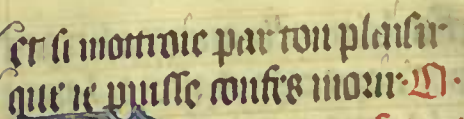 et si mottroie par ton plaisir
que ie puisse confes morir.